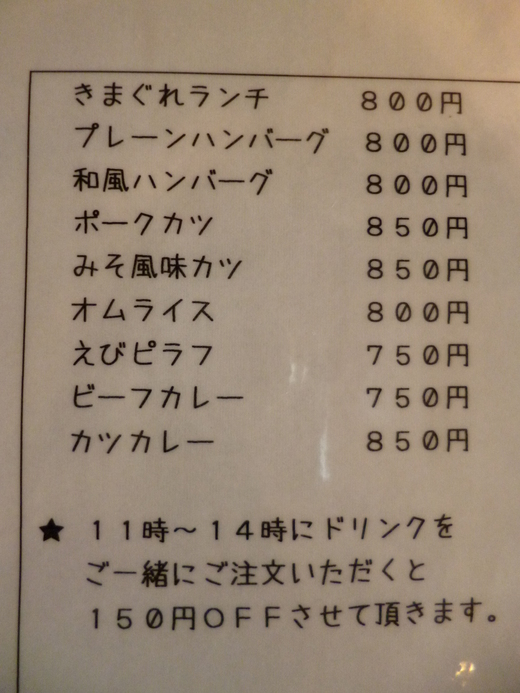 きまぐれランチ ８００円
プレーンハンバーグ ８００円
和風ハンバーグ ８００円
ポークカツ ８５０円
みそ風味カツ ８５０円
オムライス ８００円
えびピラフ ７５０円
ビーフカレー ７５０円
カツカレー ８５０円
★ １１時～１４時にドリンクを
ご一緒にご注文いただくと
１５０円ＯＦＦさせて頂きます。